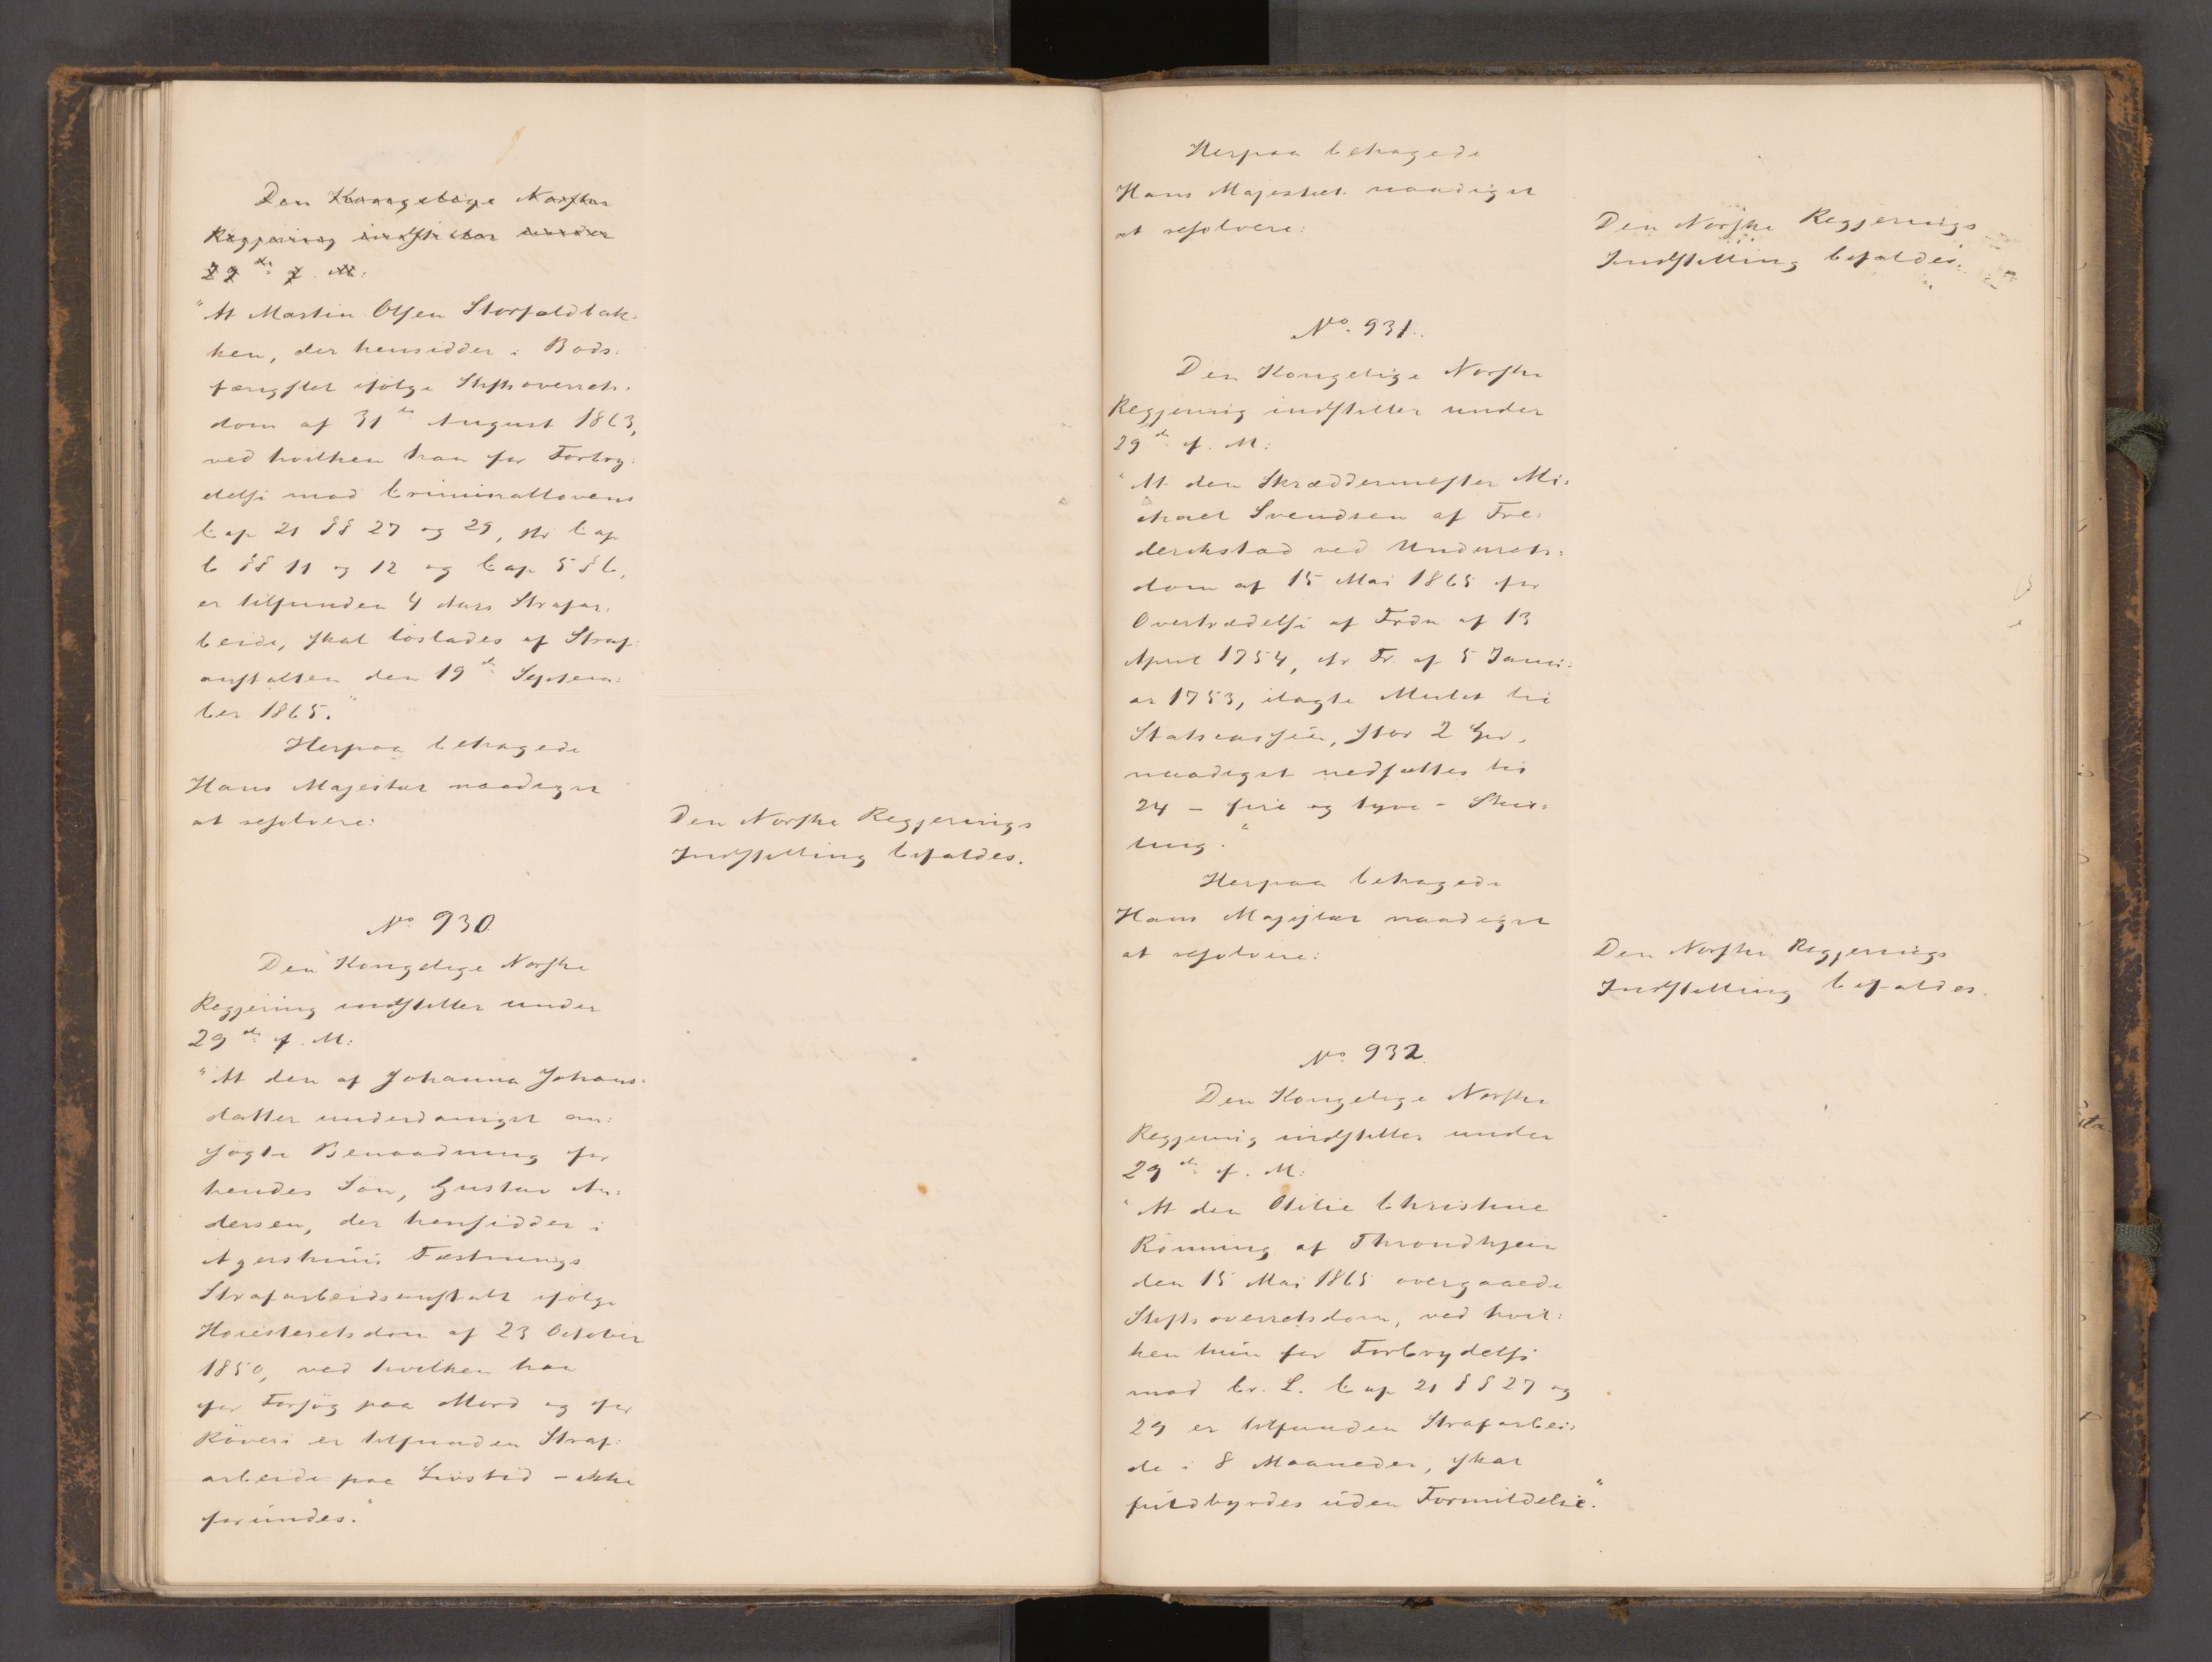 Den Kongelige Norske
Regjering indstiller under
29de f. M:
"At Martin Olsen Storfaldbak-
ken, der hensidder i Bods-
fængslet ifølge Stiftsoverrets-
dom af 31te August 1863,
ved hvilken han for Forbry-
delse mod Criminallovens
Cap 21 §§ 27 og 29, sbr Cap
6 §§ 11 og 12 og Cap 5 § 6,
er tilfunden 4 Aars Strafar-
beide, skal løslades af Straf-
anstalten den 19de Septem-
ber 1865."
Herpaa behagede
Hans Majestæt naadigst
at resolvere:
Den Norske Regjerings
Indstilling bifaldes.
No 930
Den Kongelige Norske
Regjering indstiller under
29de f. M:
"At den af Johanna Johans-
datter underdanigst an-
søgte Benaadning for
hendes Søn, Gustav An-
dersen, der hensidder i
Agershuus Fæstnings
Strafarbeidsanstalt ifølge
Høiesteretsdom af 23 October
1850, ved hvilken han
for Forsøg paa Mord og for
Røveri er tilfunden Straf-
arbeide paa Livstid – ikke
forundes."
Herpaa behagede
Hans Majestæt naadigst
at resolvere:
Den Norske Regjerings
Indstilling bifaldes.
No. 931.
Den Kongelige Norske
Regjering indstiller under
29de f. M:
"At den Skræddermester Mi-
chael Svendsen af Fre-
derikstad ved Underrets-
dom af 15 Mai 1865 for
Overtrædelse af Frdn af 13
April 1754, sbr Fr. af 5 Janu-
ar 1753, ilagte Mulct til
Statscassen, stor 2 Spd.
naadigst nedsættes til
24 – fire og tyve – Skil-
ling."
Herpaa behagede
Hans Majestæt naadigst
at resolvere:
Den Norske Regjerings
Indstilling bifaldes.
No 932.
Den Kongelige Norske
Regjering indstiller under
29de f. M:
"At den Otilie Christine
Rønning af Throndhjem
den 15 Mai 1865 overgaaede
Stiftsoverretsdom, ved hvil-
ken hun for Forbrydelse
mod Cr. L. Cap 21 §§ 27 og
29 er tilfunden Strafarbei-
de i 8 Maaneder, skal
fuldbyrdes uden Formildelse."